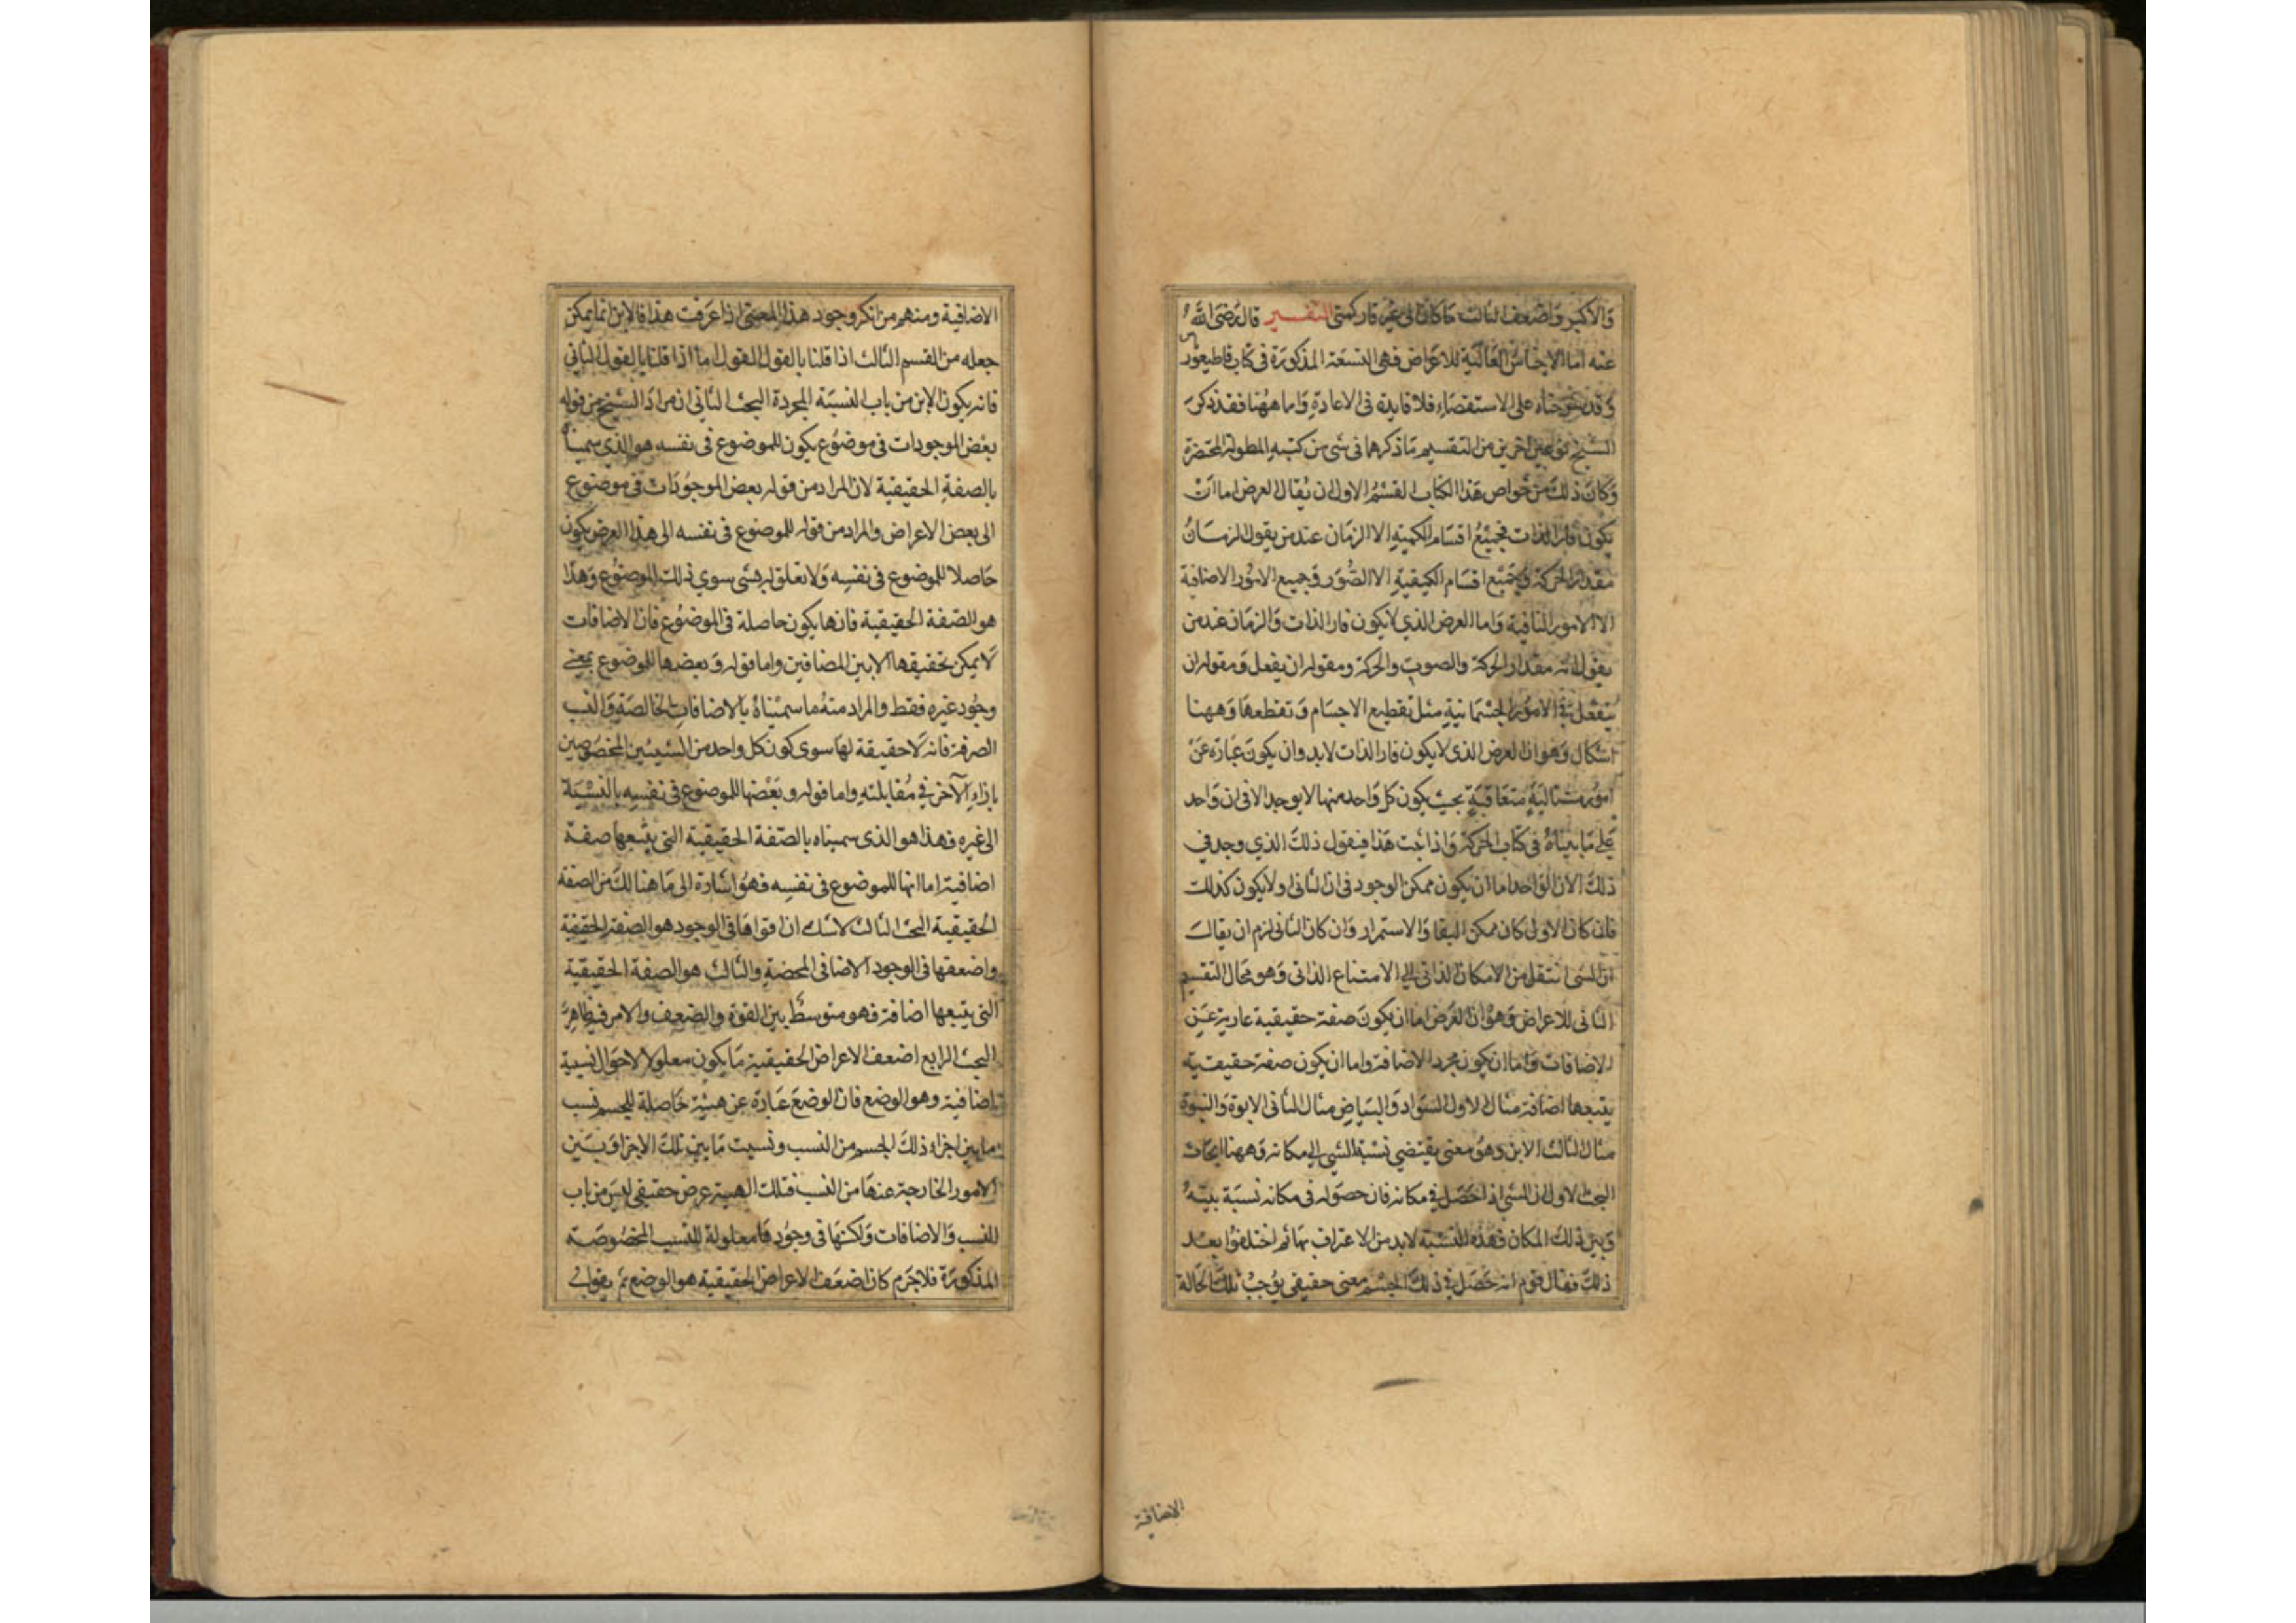 والأكبر واضعف الثالث ما كان الى غير قار كمتى التفسير قال رضى الله
عنه اما الاجناس العالية للاعراض فهى التسعة المذكورة فى كتاب قاطيغورياس
وقد شرحناه على الاستقصاء فلا فايدة فى الاعادة واما ههنا فقد ذكر
الشيخ نوعين اخرين من التقسيم ما ذكرهما فى شى من كتبه المطولة المختصرة
وكان ذلك من خواص هذا الكتاب القسم الاول ان يقال العرض اما ان
يكون قار الذات فجميع اقسام الكمية الا الزمان عند من يقول الزمان
مقدار الحركة وجميع اقسام الكيفية الا الصور وجميع الامور الاضافة
الا الامور المنافية واما العرض الذي لا يكون قار الذات والزمان عند من
يقول انه مقدار الحركة والصوت والحركة ومقوله ان يفعل ومقوله ان
ينفعل فى الامور الجسمانية مثل تقطيع الاجسام وتقطعها وههنا
اشكال وهو ان العرض الذى لا يكون قار الذات لابد وان يكون عبارة عن
امور متتالية متعاقبة بحيث يكون كل واحد منها لا يوجد الا فى ان واحد
على ما بيناه فى كتاب الحركة واذا ثبت هذا فيقول ذلك الذي وجد في
ذلك الان الواحد اما ان يكون ممكن الوجود فى ان الثانى او لا يكون كذلك
فان كان الاول كان ممكن البقا والاستمرار وان كان الثانى لزم ان يقال
ان الشى انتقل من الامكان الذاتى الى الامتناع الذاتى وهو محال التقسيم
الثانى للاعراض وهو ان العرض اما ان يكون صفة حقيقية عارية عن
الاضافات واما ان يكون مجرد الاضافة واما ان يكون صفة حقيقية
يتبعها اضافة مثال الاول السواد والبياض مثال الثانى الابوة والنبوة
مثال الثالث الاين وهو معنى يقتضي نسبة الشي الى مكانه وههنا ابحاث
البحث الاول ان الشى اذا حصل في مكانه فان حصوله فى مكانه نسبة بينه
وبين ذلك المكان فهذه النسبة لابد من الاعتراف بها ثم اختلفوا بعد
ذلك فقال قوم انه حصل في ذلك الجسم معنى حقيقى يوجب تلك الحالة
الاضافية
الاضافية ومنهم من انكر وجود هذا المعنى اذا عرفت هذا فالاين انما يمكن
جعله من القسم الثالث اذا قلنا بالقول القول اما اذا قلنا بالقول الثاني
فانه يكون الاين من باب النسبة المجردة البحث الثانى ان مراد الشيخ من قوله
بعض الموجودات فى موضوع يكون للموضوع فى نفسه هو الذي سميناه
بالصفة الحقيقية لان المراد من قوله بعض الموجودات فى موضوع
الى بعض الاعراض والمراد من قوله للموضوع فى نفسه الى هذا العرض يكون
حاصلا للموضوع فى نفسه ولا تعلق له بشى سوي ذلك الموضوع وهذا
هو الصفة الحقيقية فانها يكون حاصلة فى الموضوع فان الاضافات
لا يمكن تحقيقها الا بين المضافين واما قوله وبعضها للموضوع بمعنى
وجود غيره فقط والمراد منه ما سميناه بالاضافات الخالصة والنسب
الصرفة فانه لا حقيقة لها سوى كون كل واحد من الشيئين المخصوصين
بازاء الآخر في مقابلته واما قوله وبعضها للموضوع فى نفسه بالنسبة
الى غيره فهذا هو الذى سميناه بالصفة الحقيقية التى يتبعها صفة
اضافية اما انها للموضوع فى نفسه فهو اشارة الى ما هنالك من الصفة
الحقيقية البحث الثالث لا شك ان اقواها فى الوجود هو الصفة الحقيقية
واضعفها فى الوجود الاضافى المحضة والثالث هو الصفة الحقيقية
التى يتبعها اضافة فهو متوسط بين القوة والضعيف والامر فيه ظاهر
البحث الرابع اضعف الاعراض الحقيقية ما يكون معلولا لاحوال نسبية
اضافية وهو الوضع فان الوضع عبارة عن هيئة حاصلة للجسم نسب
ما بين اجزاء ذلك الجسم من النسب ونسبت ما بين تلك الاجزا وبين
الامور الخارجة عنها من النسب فتلك الهيئة عرض حقيقى ليس من باب
للنسب والاضافات ولكنها فى وجودها معلولة للنسب المخصوصة
المذكورة فلا جرم كان اضعف الاعراض الحقيقية هو الوضع ثم يقول